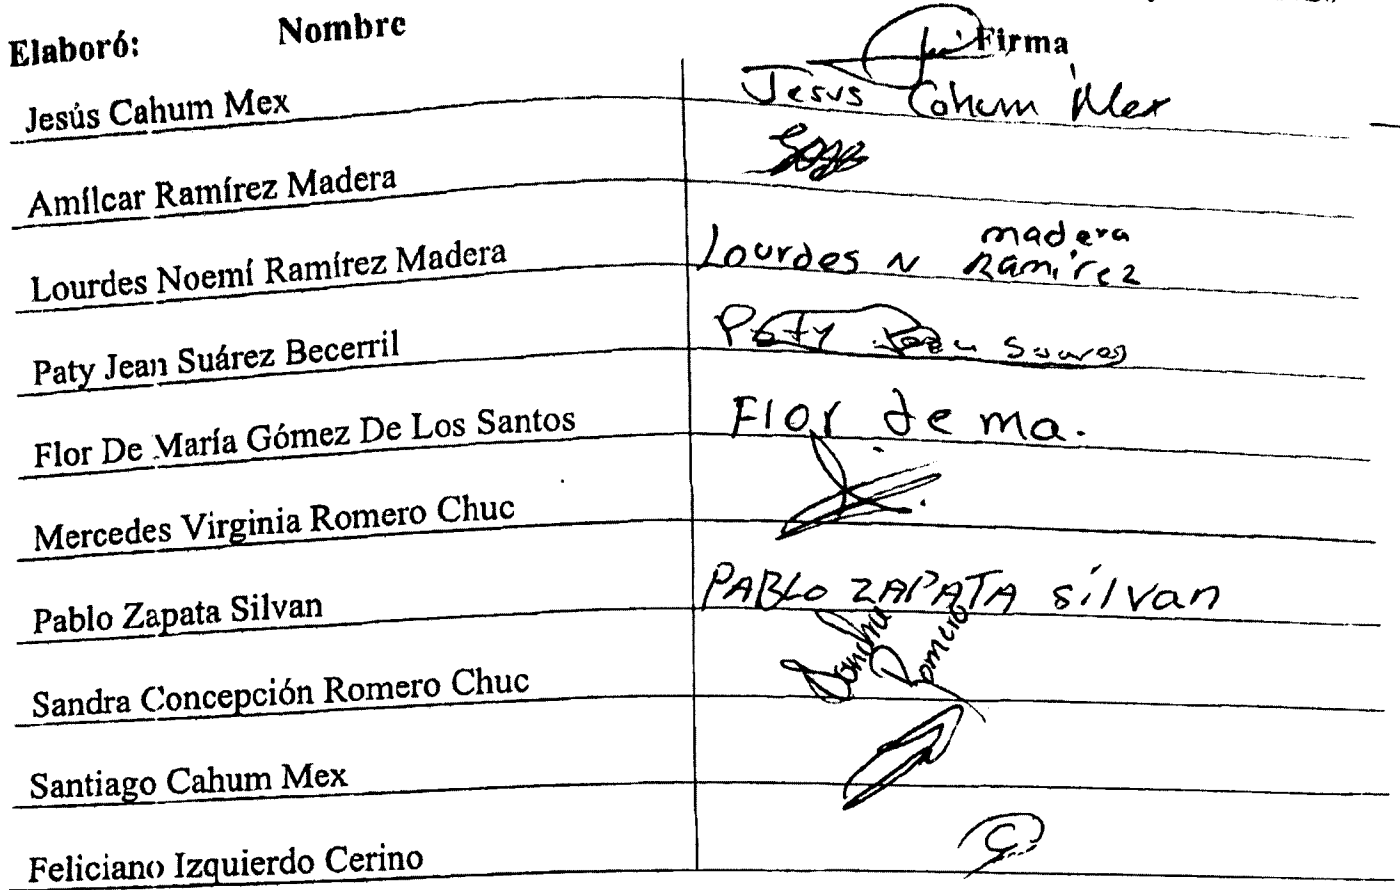 Elaboró: Nombre Firma
Jesús Cahum Mex Jesus Cahum Mex
Amílcar Ramírez Madera
Lourdes Noemí Ramírez Madera Lourdes N Ramírez madera
Paty Jean Suárez Becerril Paty Jean Suarez
Flor De María Gómez De Los Santos Flor de ma.
Mercedes Virginia Romero Chuc
Pablo Zapata Silvan PABLO ZAPATA silvan
Sandra Concepción Romero Chuc Sandra Romero
Santiago Cahum Mex
Feliciano Izquierdo Cerino